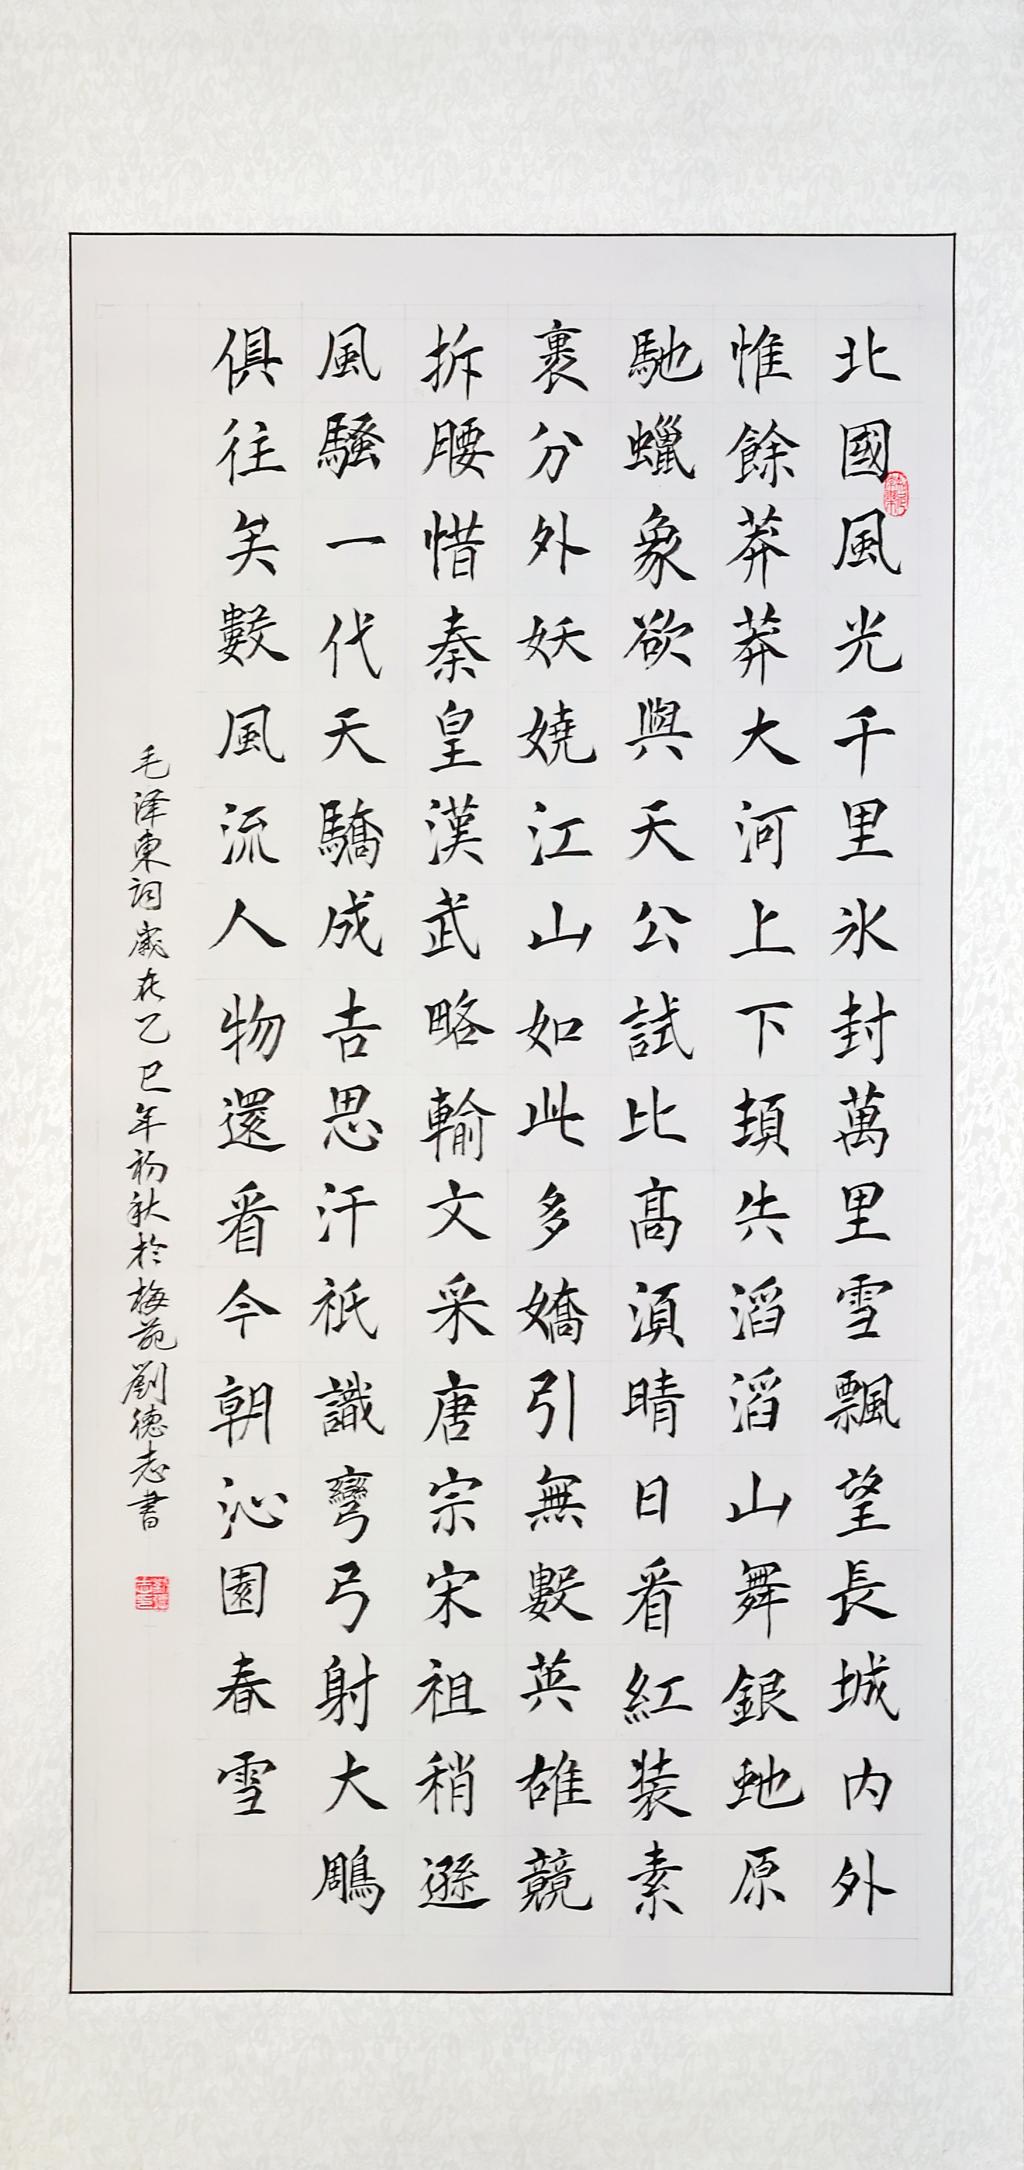 北國風光千里氷封萬里雪飄望長城内外
惟餘莽莽大河上下頓失滔滔山舞銀虵原
馳蠟象欲與天公試比髙須晴日看紅装素
裹分外妖嬈江山如此多嬌引無數英雄競
拆腰惜秦皇漢武略輸文采唐宗宋祖稍遜
風騷一代天驕成吉思汗祇識彎弓射大鵰
俱往矣數風流人物還看今朝沁園春雪
毛泽東詞歲在乙巳年初秋於梅苑劉德志書